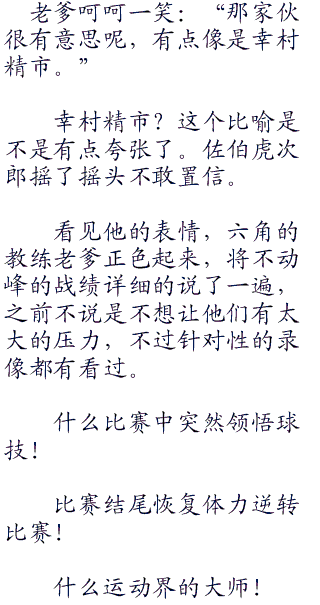 老爹呵呵一笑：“那家伙
很有意思呢，有点像是幸村
精市。”
幸村精市？这个比喻是
不是有点夸张了。佐伯虎次
郎摇了摇头不敢置信。
看见他的表情，六角的
教练老爹正色起来，将不动
峰的战绩详细的说了一遍，
之前不说是不想让他们有太
大的压力，不过针对性的录
像都有看过。
什么比赛中突然领悟球
技！
比赛结尾恢复体力逆转
比赛！
什么运动界的大师！